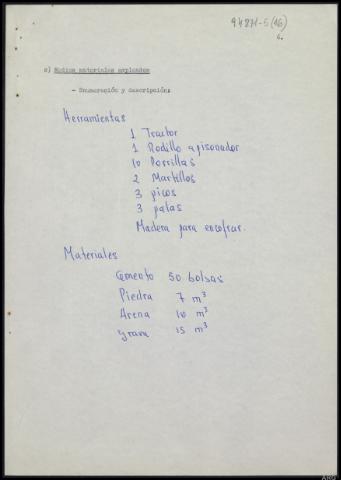 94871-5(16)
6.
e) Medios materiales empleados
- Enumeración y descripción:
Herramientas
1 Tractor
1 Rodillo apisonador
10 Porrillas
2 Martillos
3 picos
3 palas
Madera para encofrar.
Materiales
Cemento 50 bolsas
Piedra 7 m³
Arena 10 m³
grava 15 m³